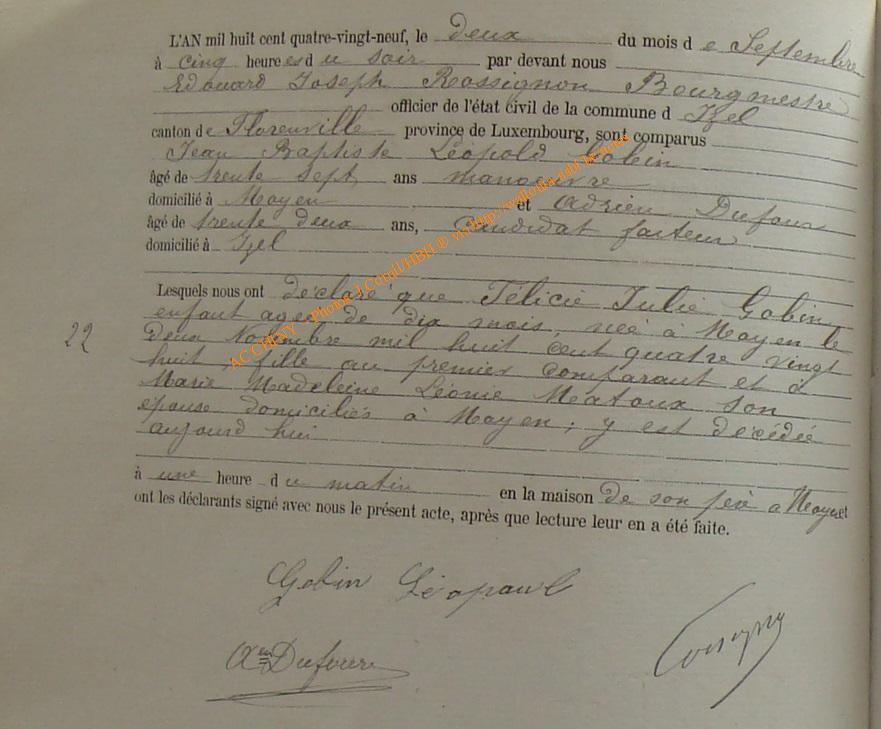 L'AN mil huit cent quatre-vingt-neuf, le deux du mois d e Septembre
à cinq heures du soir par devant nous
Edouard Joseph Rossignon Bourgmestre
officier de l'état civil de la commune d Izel
canton de Florenville province de Luxembourg, sont comparus
Jean Baptiste Léopold Gobin
âgé de trente sept ans manoeuvre
domicilié à Moyen et Adrien Dufour
âgé de trente deux ans, Candidat facteur
domicilié à Izel
Lesquels nous ont déclaré que Félicie Julie Gobin,
enfant agée de dix mois, née à Moyen le
22
Deux Novembre mil huit cent quatre vingt
huit, fille au premier comparant et à
Marie Madeleine Léonie Matoux son
épouse domiciliés à Moyen; y est décédée
aujourd hui
à une heure du matin en la maison de son père a Moyen et
ont les déclarants signé avec nous le présent acte, après que lecture leur en a été faite.
Gobin Léopaul
Dufour
ACCHINY Photos